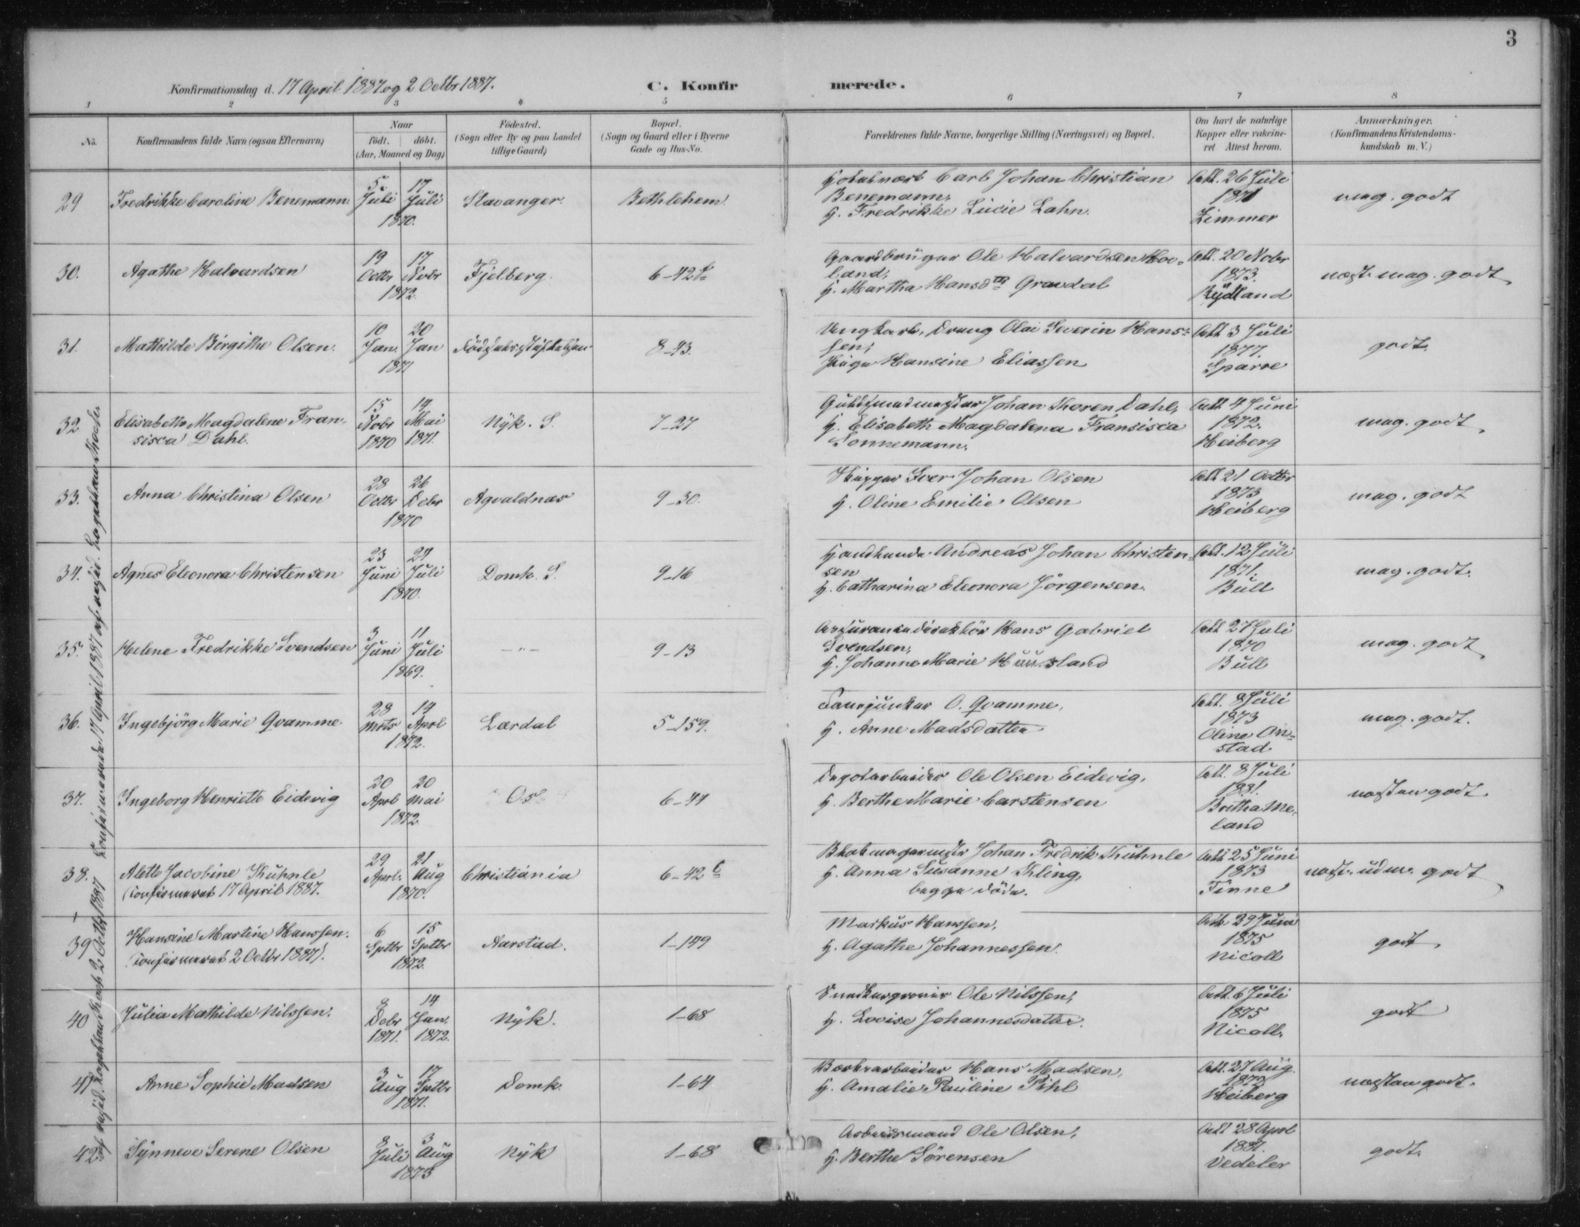 3
Konfirmationsdag d. 17 April 1887 og 2 Octbr 1887.
C. Konfirmerede.
1 2 3 4 5 6 7 8
No.
Konfirmandens fulde Navn (ogsaa Efternavn)
Naar
født. døbt.
(Aar, Maaned og Dag)
Fødested.
(Sogn eller By og paa Landet
tillige Gaard)
Bopæl.
(Sogn og Gaard eller i Byerne
Gade og Hus-No.
Forældrenes fulde Navne, borgerlige Stilling (Næringsvei) og Bopæl.
Om havt de naturlige
Kopper eller vakcine-
ret Attest herom.
Anmærkninger.
(Konfirmandens Kristendoms-
kundskab m. V.)
29 Fredrikke Caroline Benemann 5 Juli 17 Juli 1870. Stavanger Bethlehem
Carl Johan Christian
Benemann,
h. Fredrikke Lucie Lahn.
Att. 26 Juli
1871
Zimmer
mag. godt
30. Agathe Halvardsen 19 Octbr 17 Novbr 1872. Fjelberg 6-42
Gaardbruger Ole Halvardsen Hov-
land,
h. Martha Hansdtr Gravdal
Att. 20 Novbr
1873.
Rydland
næst. mag. godt
31. Mathilde Birgithe Olsen. 10 Jan. 20 Jan 1871 Fødselsstiftelsen 8-93.
Ungkarl, Dreng Olai Severin Hans-
sen,
Pige Hansine Eliassen
Att. 3 Juli
1877.
Sparre
godt
32 Elisabeth Magdalene Fran-
sisca Dahl. 15 Novbr 1870 14 Mai 1871. Nyk. S. 7-27
Johan Thoren Dahl,
h. Elisabeth Magdalena Fransisca
Sonnemann.
Att 4 Juni
1872.
Heiberg
mag. godt
33. Anna Christina Olsen 28 Octbr 26 Debr 1870 Agvaldnæs 9-30.
Skipper Iver Johan Olsen
h. Oline Emilie Olsen
Att 21 Octbr
1873
Heiberg
mag. godt
34. Agnes Eleonora Christensen 23 Juni 24 Juli 1870 Domk. S. 9-16
Andreas Johan Christen-
sen
h. Catharina Eleonora Jörgensen
Att. 12 Juli
1871.
Bull
mag. godt.
35. Helene Fredrikke Svendsen 3 Juni 11 Juli 1869. -"- 9-13
Assurancedirektör Hans Gabriel
Svendsen,
h. Johanne Marie Huusland
Att 27 Juli
1870
Bull
mag. godt
36. Ingebjörg Marie Qvamme 28 Mrts 19 Aprl 1872. Lærdal 5-159.
O. Qvamme,
h. Anne Madsdatter
Att. 8 Juli
1873
Oline On-
stad.
mag. godt.
37. Ingeborg Henriette Eidevig 20 Aprl 20 Mai 1872. Os 6-44
Depotarbeider Ole Olsen Eidevig,
h. Berthe Marie Carstensen
Att. 8 Juli
1881.
Bertha Me-
land
næsten godt.
38. Alette Jacobine Kühnle
Confirmeret 17 April 1887. 29 Aprl. 21 Aug 1870. Christiania 6-42
Johan Fredrik Kühnle
h. Anna Susanne Kling,
begge döde.
Att 25 Juni
1873
Finne
næst. udm. godt
39 Hansine Martine Hanssen.
Confirmeret 2 Octbr 1887. 6 Sptbr 15 Sptbr 1872. Aarstad. 1-149
Markus Hanssen,
h. Agathe Johannessen.
Att. 29 Juni
1875
Nicoll
godt.
40 Julia Mathilde Nilssen. 8 Debr 1871. 14 Jan. 1872. Nyk. 1-68
Ole Nilssen,
h. Lovise Johannesdatter.
Att. 6 Juli
1875
Nicoll.
godt
41 Anne Sophie Madsen 3 Aug 17 Sptbr 1871. Domk. 1-64
Hans Madsen,
h. Amalie Pauline Pihl
Att. 27 Aug.
Heiberg
næsten godt.
42 Synneve Serene Olsen 8 Juli 3 Aug 1873 Nyk 1-68
Arbeidsmand Ole Olsen,
h. Berthe Sörensen
Att 28 Aprl
Vedeler
godt.